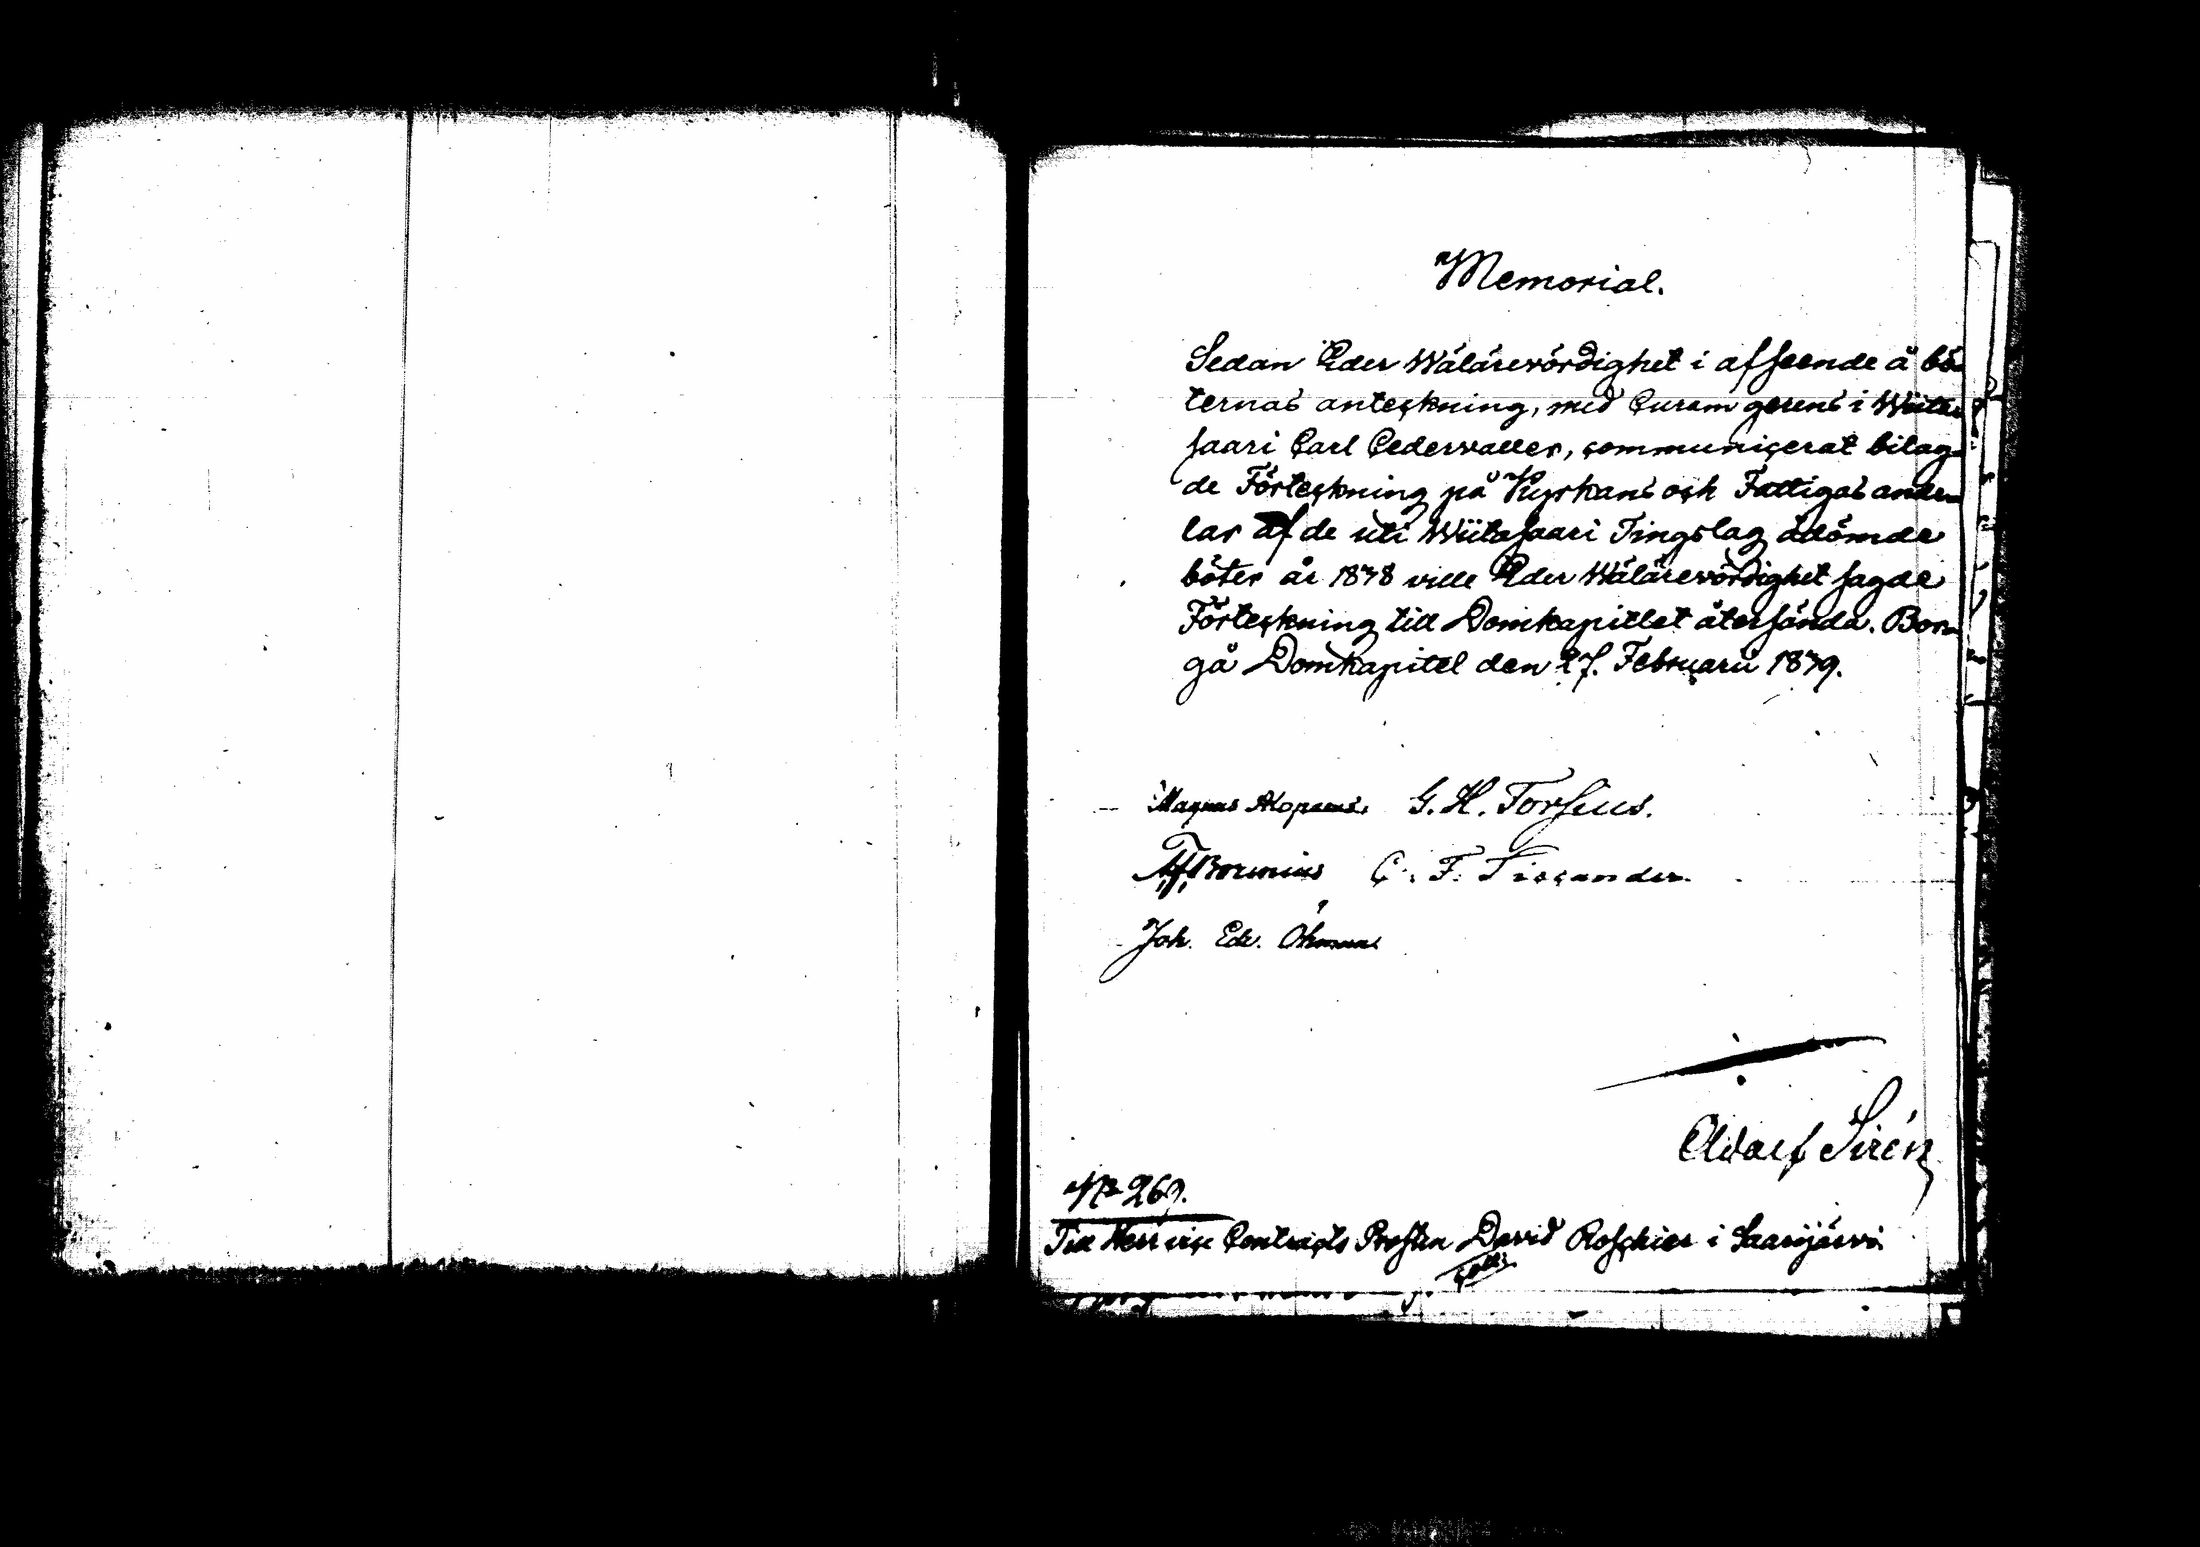 Memorial.
Sedan Eder Wälärevördighet i afseende å bö-
ternas anteckning, med Curam gerens i Wiita-
saari Carl Cedervaller, communicerat bilag-
de Förteckning på Kyrkans och Fattigas ande-
lar af de uti Wiitasaari Tingslag ådömde
böter år 1878 ville Eder Wälärevördighet sagde
Förteckning till Domkapitlet återsända. Bor-
gå Domkapitel den 27. Februarii 1879.
Magnus Alopaeus. G. H. Forsius.
Borenius C. F. Ticcander.
Joh. Edv. Öhman
Adolf Sirén
No 269.
Till Herr vice Contracts Prosten David Roschier i Saarijärvi